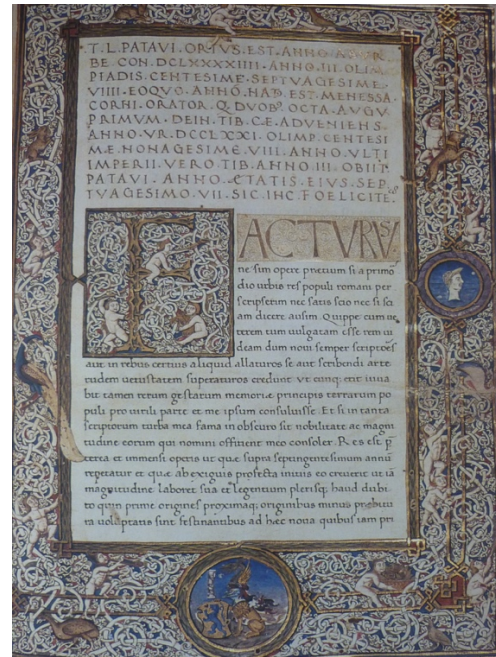 T. L. PATAVI. ORTVS. EST. ANNO. AB. VR
BE CON. DCLXXXXIIII. ANNO. III. OLIM
PIADIS. CENTESIME. SEPTVAGESIME.
VIIII. EOQVE. ANNO. EST. MENESSA.
CORNI. ORATOR. Q. OCTA. AVGV
PRIMVM. DEIN. TIB. CÆ. ADVENIENS
ANNO. VR. DCCLXXI. OLIMP. CENTESI
MÆ. NONAGESIME. VIII. ANNO. VLTI
IMPERII. VERO. TIB. ANNO. III. OBIIT
PATAVI. ANNO. ETATIS. EIVS. SEP
TVAGESIMO. VII. SIC. IHC. FOELICITE.
FACTVRVS
ne sim opere pretium si a primo
dio urbis res populi romani per
scripserim nec satis scio nec si sci
am dicere ausim. Quippe cum ue
terem tum uulgatam esse rem ui
deam dum noui semper scriptores
aut in rebus certius aliquid allaturos se aut scribendi arte
rudem uetustatem superaturos credunt ut cunq; erit iuua
bit tamen rerum gestarum memoriæ principis terrarum po
puli pro uirili parte et me ipsum consuluisse. Et si in tanta
scriptorum turba mea fama in obscuro sit nobilitate ac magni
tudine eorum qui nomini officient meo consoler. Res est p̄
terea et immensi operis ut quæ supra septingentesimum annū
repetatur et quæ ab exiguis profecta initiis eo creuerit ut iā
magnitudine laboret sua et legentium plerisq; haud dubi
to quin prime origines proximaq; originibus minus prebitu
ra uoluptatis sint festinantibus ad hæc noua quibus iam pri